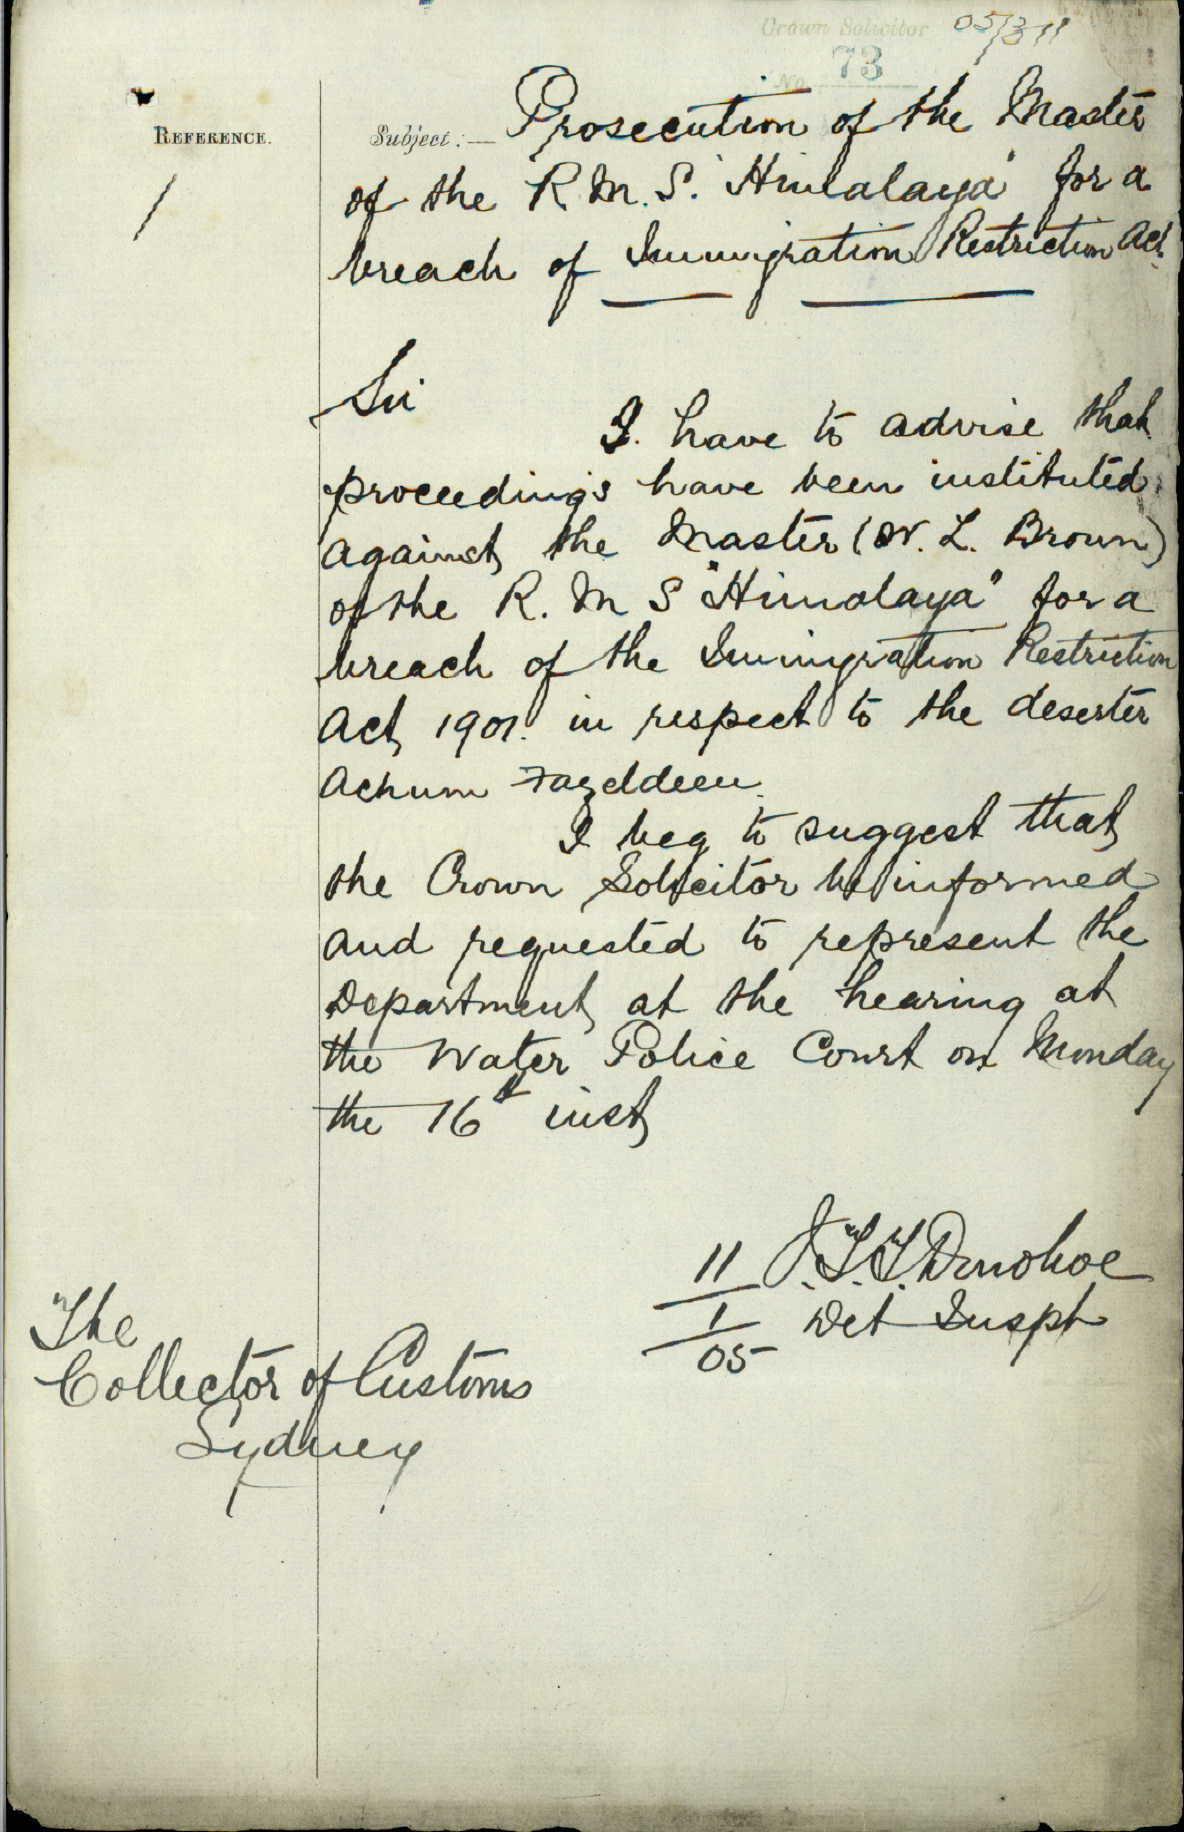 Crown Solicitor 05/311
No. 73
REFERENCE.
Subject:— Prosecution of the Master
of the R.M.S. "Himalaya" for a
breach of Immigration Restriction Act.
Sir
I have to advise that
proceedings have been instituted
against the Master (W. L. Brown)
of the R. M S "Himalaya" for a
breach of the Immigration Restriction
Act 1901. in respect to the deserter
Achum Fazeldeen.
I beg to suggest that
the Crown Solicitor be informed
and requested to represent the
Department at the hearing at
the Water Police Court on Monday
the 16th inst
11 J.T.T. Donohoe
1 Det Inspt
05
The
Collector of Customs
Sydney